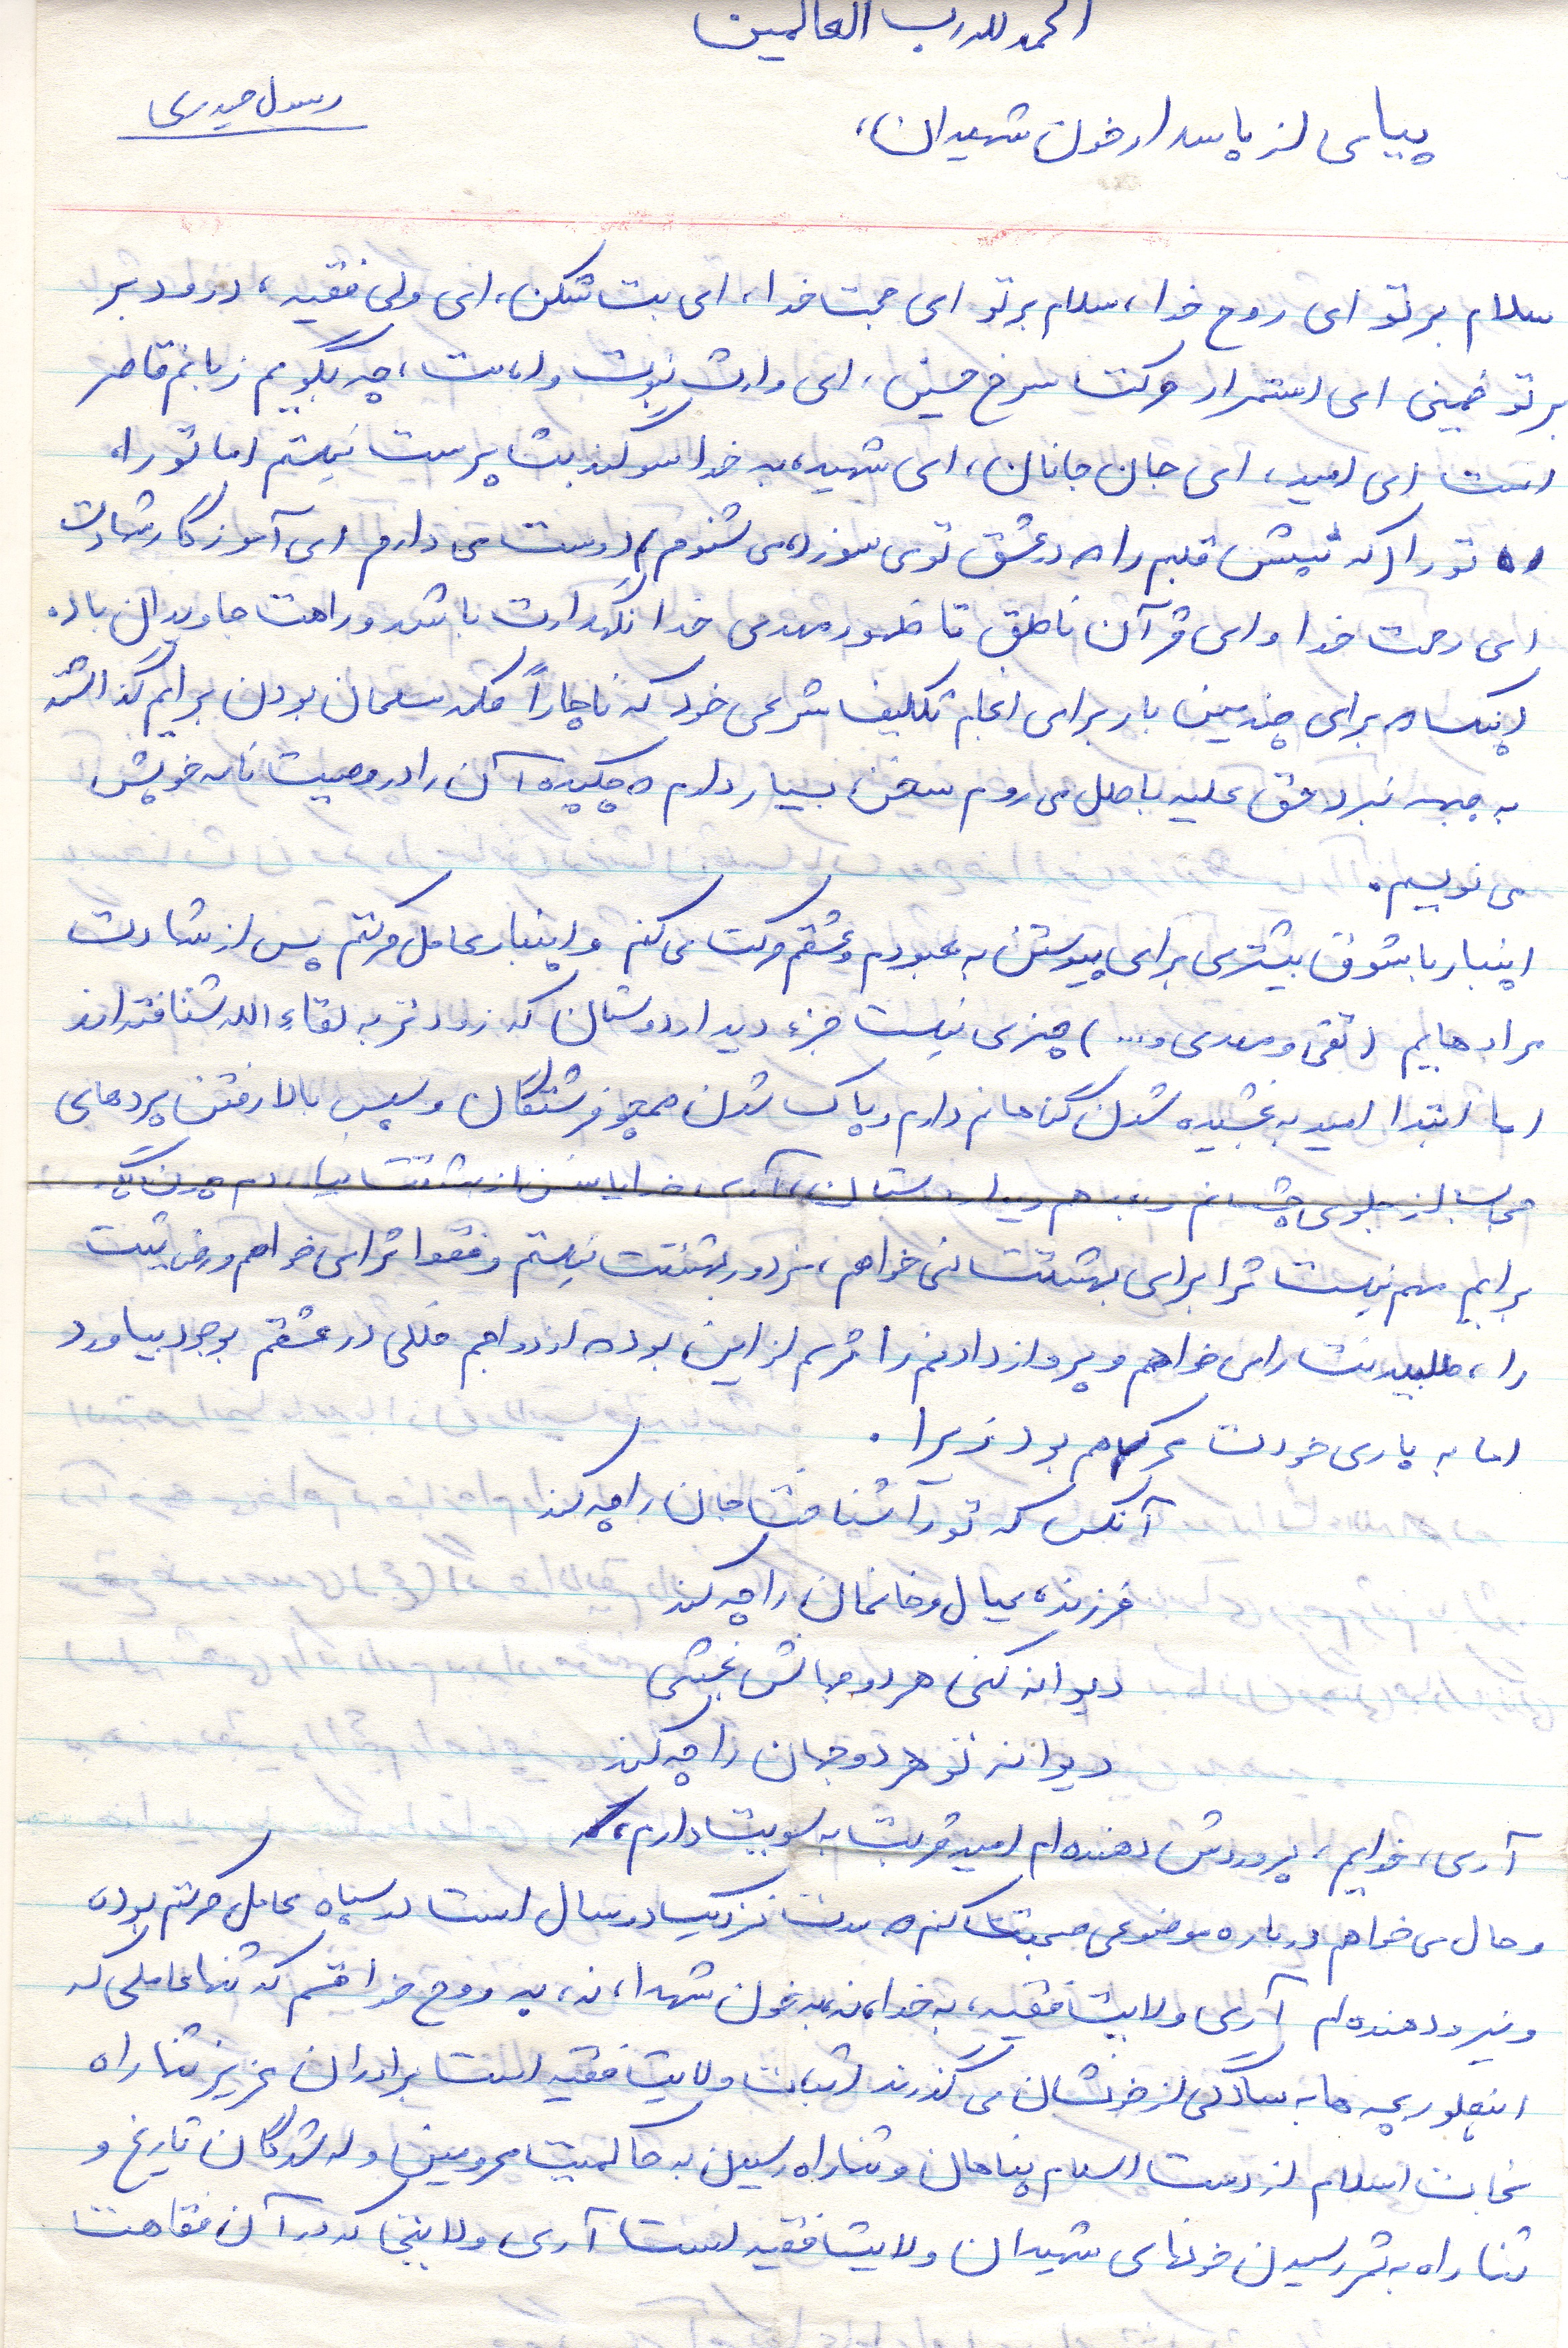 الحمد لله رب العالمین
رسول حیدری
پیامی از پاسدار خون شهیدان،
سلام بر تو ای روح خدا، سلام بر تو ای حجت خدا، ای بت شکن، ای ولی فقیه، درود بر
بر تو خمینی ای استمرار حرکت سرخ حسین، ای وارث نبوت و امامت، چه بگویم زبانم قاصر
است ای امید، ای جان جانان، ای شهید، به خدا سوگند بت پرست نیستم اما تو را،
تو را (که تپش قلبم را که در عشق تو می سوزد، می شنوم) دوست می دارم ای آموزگار شهادت
ای رحمت خدا و ای قرآن ناطق تا ظهور مهدی خدا نگهدارت باشد و راهت جاویدان باد.
اینک که برای چندمین بار برای انجام تکلیف شرعی خود که ناچاراً مکتب مسلمان بودن برایم گذاشته
به جبهه نبرد حق علیه باطل می روم سخن بسیار دارم که چکیده آن را در وصیت نامه خویش
می نویسم.
اینبار با شوق بیشتری برای پیوستن به معبودم و عشقم حرکت می کنم و اینبار عامل حرکتم پس از شهادت
برادرهایم (تقی و مهدی و...) چیزی نیست جزء دیدار دوستان که زودتر به لقاء الله شتافته اند
اما ابتدا امید به بخشیده شدن گناهانم دارم و پاک شدن همچو فرشتگان و سپس بالا رفتن پرده های
حجاب از جلوی چشمانم و بعد هم دیدار دوستان، آری، خدایا سخن از بهشتت
برایم مهم نیست ترا برای بهشتت نمی خواهم، مزدور بهشتت نیستم و فقط ترا می خواهم و رضایتت
را، طلبیدنت را می خواهم و پرواز دادنم را ترسم از این بود که ازدواجم خللی در عشقم بوجود بیاورد
اما به یاری خودت محرکم هم بود زیرا.
آنکس که تو را شناخت جان را چه کند
فرزند، عیال و خانمان را چه کند
دیوانه کنی هر دو جهانش بخشی
دیوانه تو هر دو جهان را چه کند
آری، خدایم، پرورش دهنده ام امید قربت به سویت دارم، که
و حال می خواهم درباره موضوعی صحبت کنم که مدت نزدیک دو سال است در سپاه عامل حرکتم بوده
و نیرو دهنده ام آری ولایت فقیه، به خدا، نه، به خون شهدا، نه، به روح خدا قسم که تنها عاملی که
اینطور بچه ها به سادگی از خونشان می گذرند اثبات ولایت فقیه است برادران عزیز تنها راه
نجات اسلام از دست اسلام پناهان و تنها راه رسیدن به حاکمیت محرومین و له شدگان تاریخ و
تنها راه به ثمر رسیدن خونهای شهیدان ولایت فقیه است آری، ولایتی که در آن فقاهت